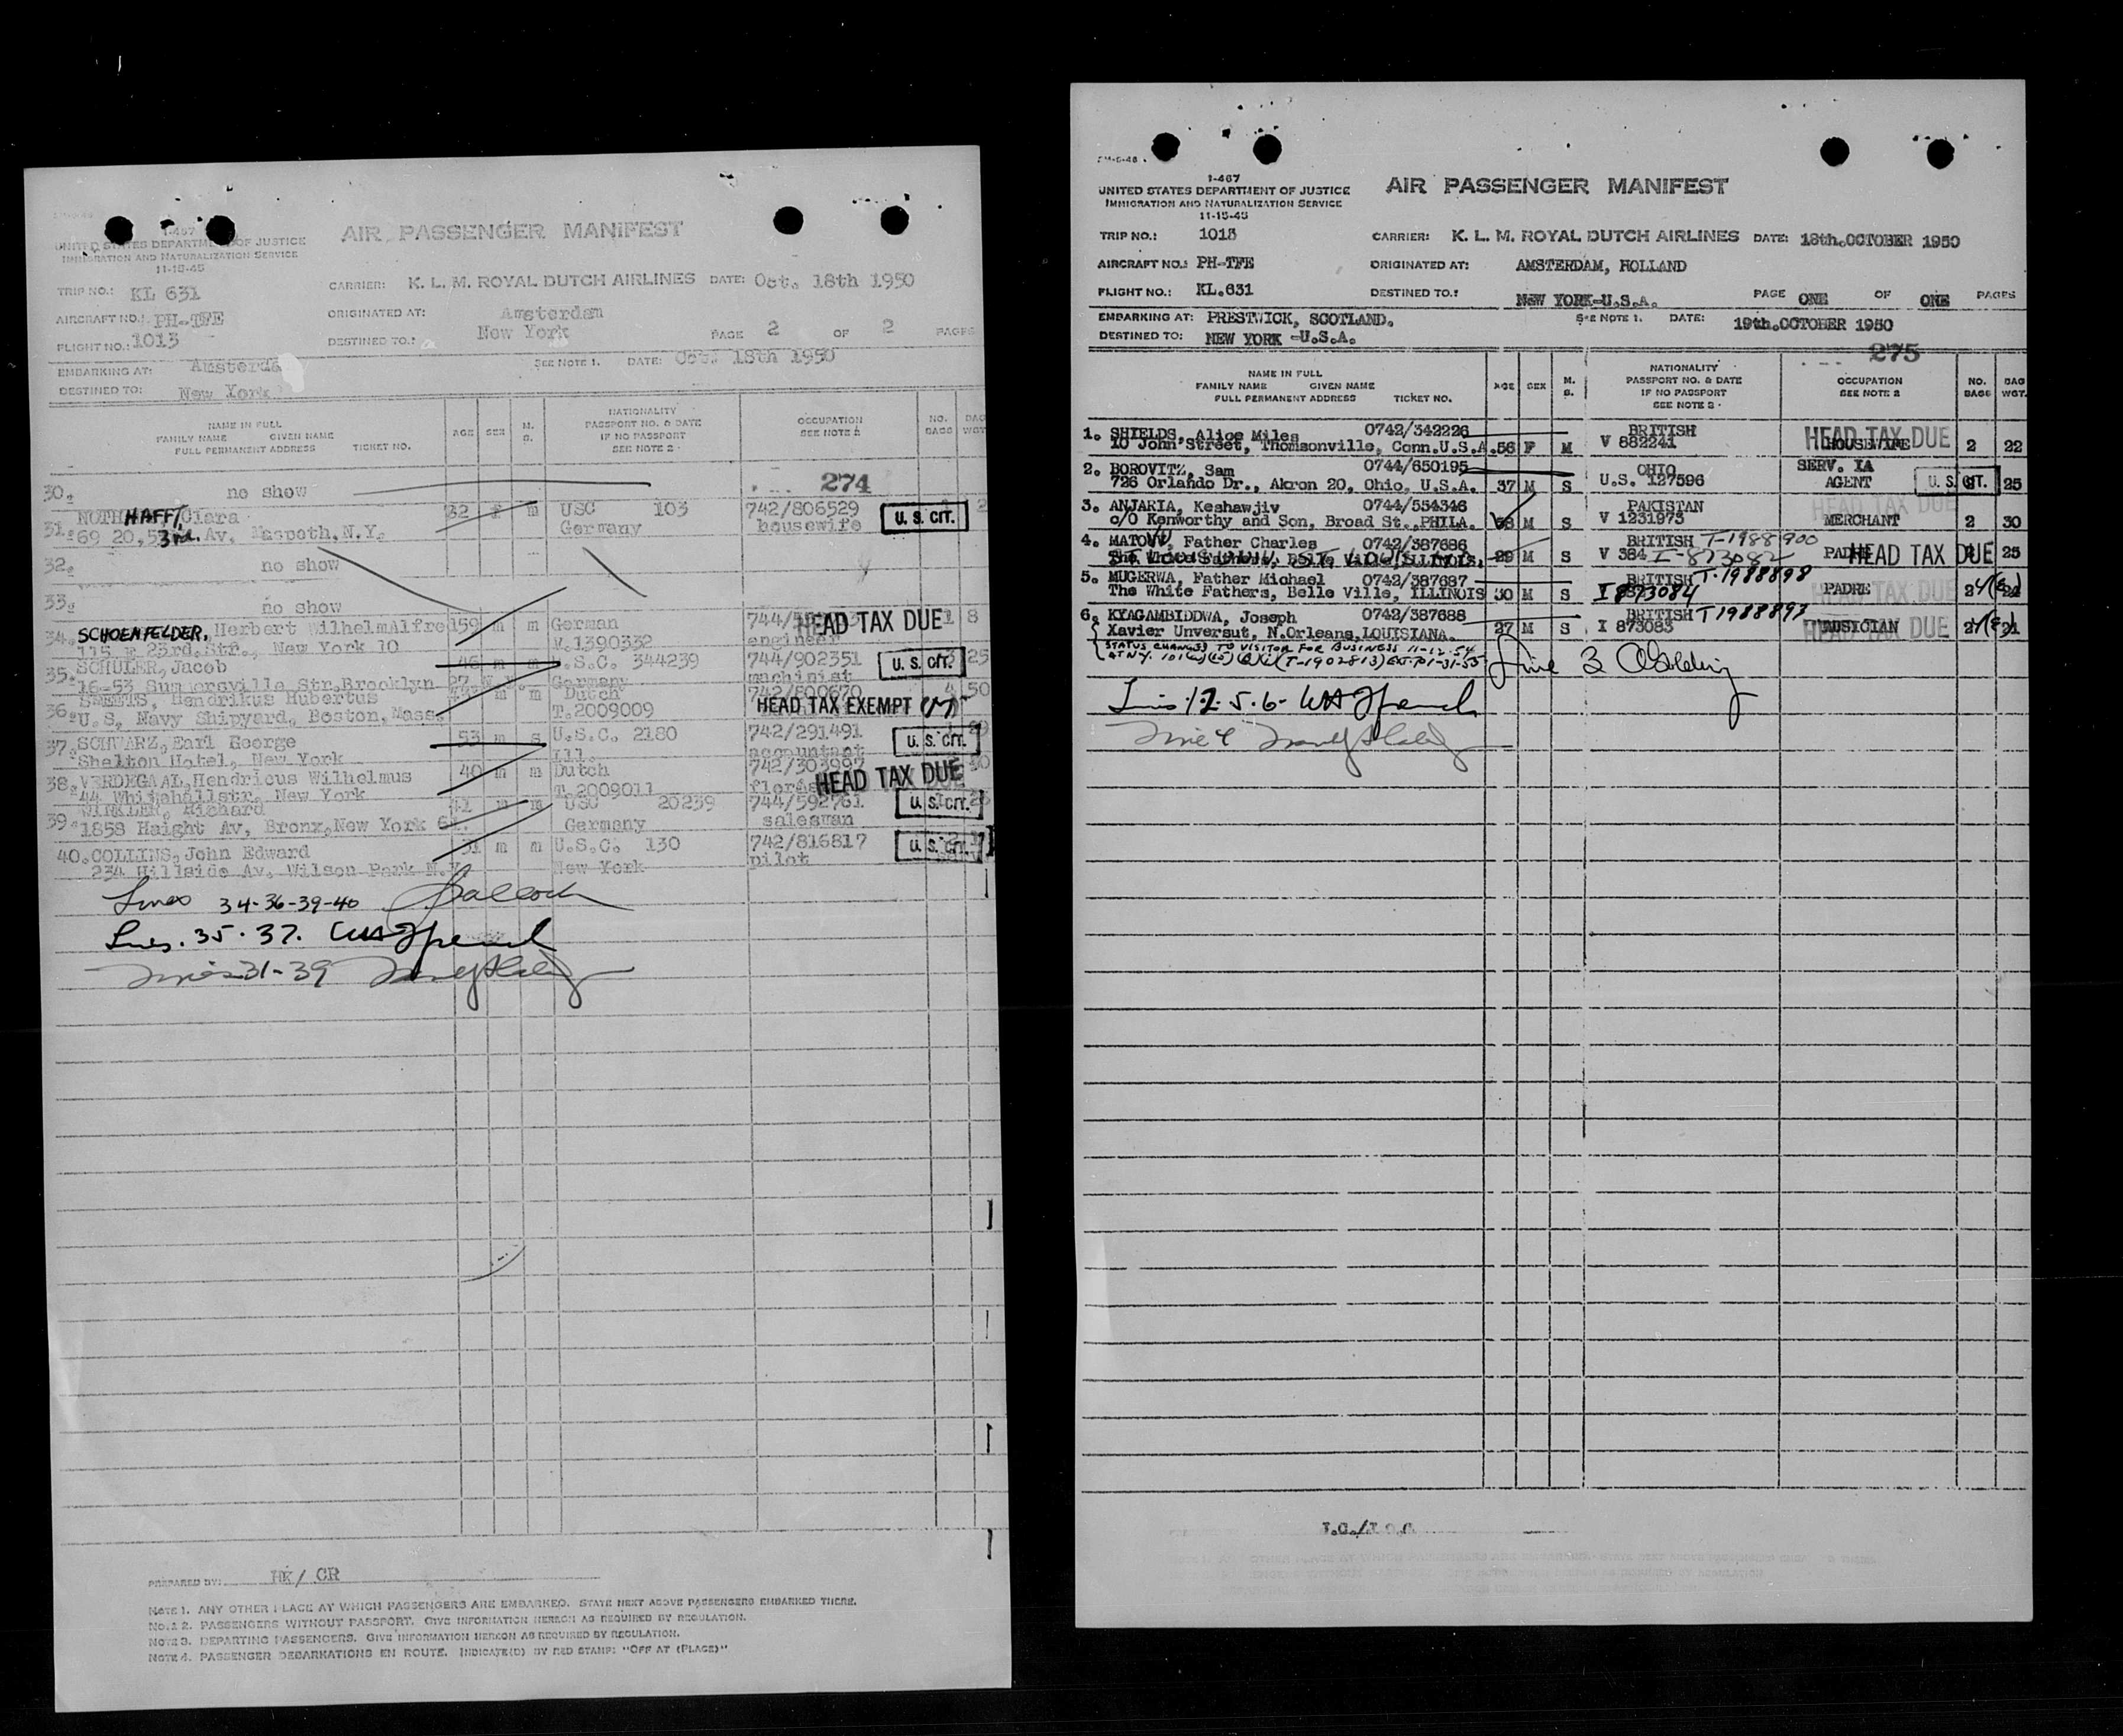 1-467
UNITED STATES DEPARTMENT OF JUSTICE
IMMIGRATION AND NATURALIZATION SERVICE
11-15-45
AIR PASSENGER MANIFEST
TRIP NO.: KL 631
CARRIER: K. L. M. ROYAL DUTCH AIRLINES DATE: Oct. 18th 1950
AIRCRAFT NO.: PH-TFE
ORIGINATED AT: Amsterdam
FLIGHT NO.: 1013
DESTINED TO.: New York PAGE 2 OF 2 PAGES
EMBARKING AT: Amsterda
SEE NOTE 1. DATE: Oct. 18th 1950
DESTINED TO: New York
NAME IN FULL
FAMILY NAME GIVEN NAME
FULL PERMANENT ADDRESS TICKET NO.
AGE SEX M. S.
NATIONALITY
PASSPORT NO. & DATE
IF NO PASSPORT
SEE NOTE 2
OCCUPATION
SEE NOTE 2
NO. BAGS
BAG WGT.
274
30. no show
31. NOTH HAFFT, Clara 32 f m USC 103 742/806529 U. S. CIT.
69 20, 53rd. Av, Maspeth, N.Y. Germany housewife
32. no show
33. no show
34. SCHOENFELDER, Herbert WilhelmAlfred 59 m m German 744/ HEAD TAX DUE 1 8
115 E 23rd.Str., New York 10 V.1390332 engineer
35. SCHULER, Jacob 46 m m .S.C. 344239 744/902351 U. S. CIT. 25
16-53 Summersville Str.Brooklyn 27 N.Y. Germany machinist
36. SMEETS, Hendrikus Hubertus m m Dutch 742/800670 4 50
U.S, Navy Shipyard, Boston, Mass. T.2009009 HEAD TAX EXEMPT
37. SCHWARZ, Earl George 53 m s U.S.C. 2180 742/291491 U. S. CIT.
Shelton Hotel, New York Ill. accountant
38. VERDEGAAL, Hendricus Wilhelmus 40 m m Dutch 742/303997 HEAD TAX DUE
44 Whitehallstr. New York T.2009011
39. WINKLER, Richard 41 m m USC 20239 744/592761 U. S. CIT.
1858 Haight Av, Bronx, New York 61. Germany salesman
40. COLLINS, John Edward 31 m m U.S.C. 130 742/816817 U. S. CIT.
234 Hillside Av. Wilson Park N.Y. New York pilot
Lines 34-36-39-40
Lines. 35. 37.
Lines 31-39
PREPARED BY: HK/ CR
NOTE 1. ANY OTHER PLACE AT WHICH PASSENGERS ARE EMBARKED. STATE NEXT ABOVE PASSENGERS EMBARKED THERE.
NOTE 2. PASSENGERS WITHOUT PASSPORT. GIVE INFORMATION HEREON AS REQUIRED BY REGULATION.
NOTE 3. DEPARTING PASSENGERS. GIVE INFORMATION HEREON AS REQUIRED BY REGULATION.
NOTE 4. PASSENGER DEBARKATIONS EN ROUTE. INDICATE(D) BY RED STAMP: "OFF AT (PLACE)"
1-467
UNITED STATES DEPARTMENT OF JUSTICE
IMMIGRATION AND NATURALIZATION SERVICE
11-15-45
AIR PASSENGER MANIFEST
TRIP NO.: 1013
CARRIER: K. L. M. ROYAL DUTCH AIRLINES DATE: 18th.OCTOBER 1950
AIRCRAFT NO.: PH-TFE
ORIGINATED AT: AMSTERDAM, HOLLAND
FLIGHT NO.: KL.631
DESTINED TO.: NEW YORK-U.S.A. PAGE ONE OF ONE PAGES
EMBARKING AT: PRESTWICK, SCOTLAND.
SEE NOTE 1. DATE: 19th.OCTOBER 1950
DESTINED TO: NEW YORK -U.S.A.
275
NAME IN FULL
FAMILY NAME GIVEN NAME
FULL PERMANENT ADDRESS TICKET NO.
AGE SEX M. S.
NATIONALITY
PASSPORT NO. & DATE
IF NO PASSPORT
SEE NOTE 2
OCCUPATION
SEE NOTE 2
NO. BAGS
BAG WGT.
1. SHIELDS, Alice Miles 0742/342226 BRITISH HEAD TAX DUE
10 John Street, Thomsonville, Conn.U.S.A. 56 F M V 882241 HOUSEWIFE 2 22
2. BOROVITZ, Sam 0744/650195 OHIO SERV. IA
726 Orlando Dr., Akron 20, Ohio, U.S.A. 37 M S U.S. 127596 AGENT U. S. CIT. 25
3. ANJARIA, Keshawjiv 0744/554346 PAKISTAN HEAD TAX DUE
c/o Kenworthy and Son, Broad St.,PHILA. M S V 1231973 MERCHANT 2 30
4. MATOVU, Father Charles 0742/387686 BRITISH T-1988900
ST. LOUIS UNIV. ST. LOUIS ILLINOIS. 29 M S V 384 I-873082 HEAD TAX DUE 25
5. MUGERWA, Father Michael 0742/387687 BRITISH T-1988898
The White Fathers, Belle Ville, ILLINOIS 30 M S I 873084 PADRE HEAD TAX DUE
6. KYAGAMBIDDWA, Joseph 0742/387688 BRITISH T1988897
Xavier Unversut, N.Orleans,LOUISIANA. 27 M S I 873083 MUSICIAN HEAD TAX DUE 21
STATUS CHANGED TO VISITOR FOR BUSINESS 11-12-54
AT N.Y. 101(a)(15)(B)(i) (T-1902813) EXT. TO 1-31-55
Line 3
Lines 1 2. 5. 6-
Line 4